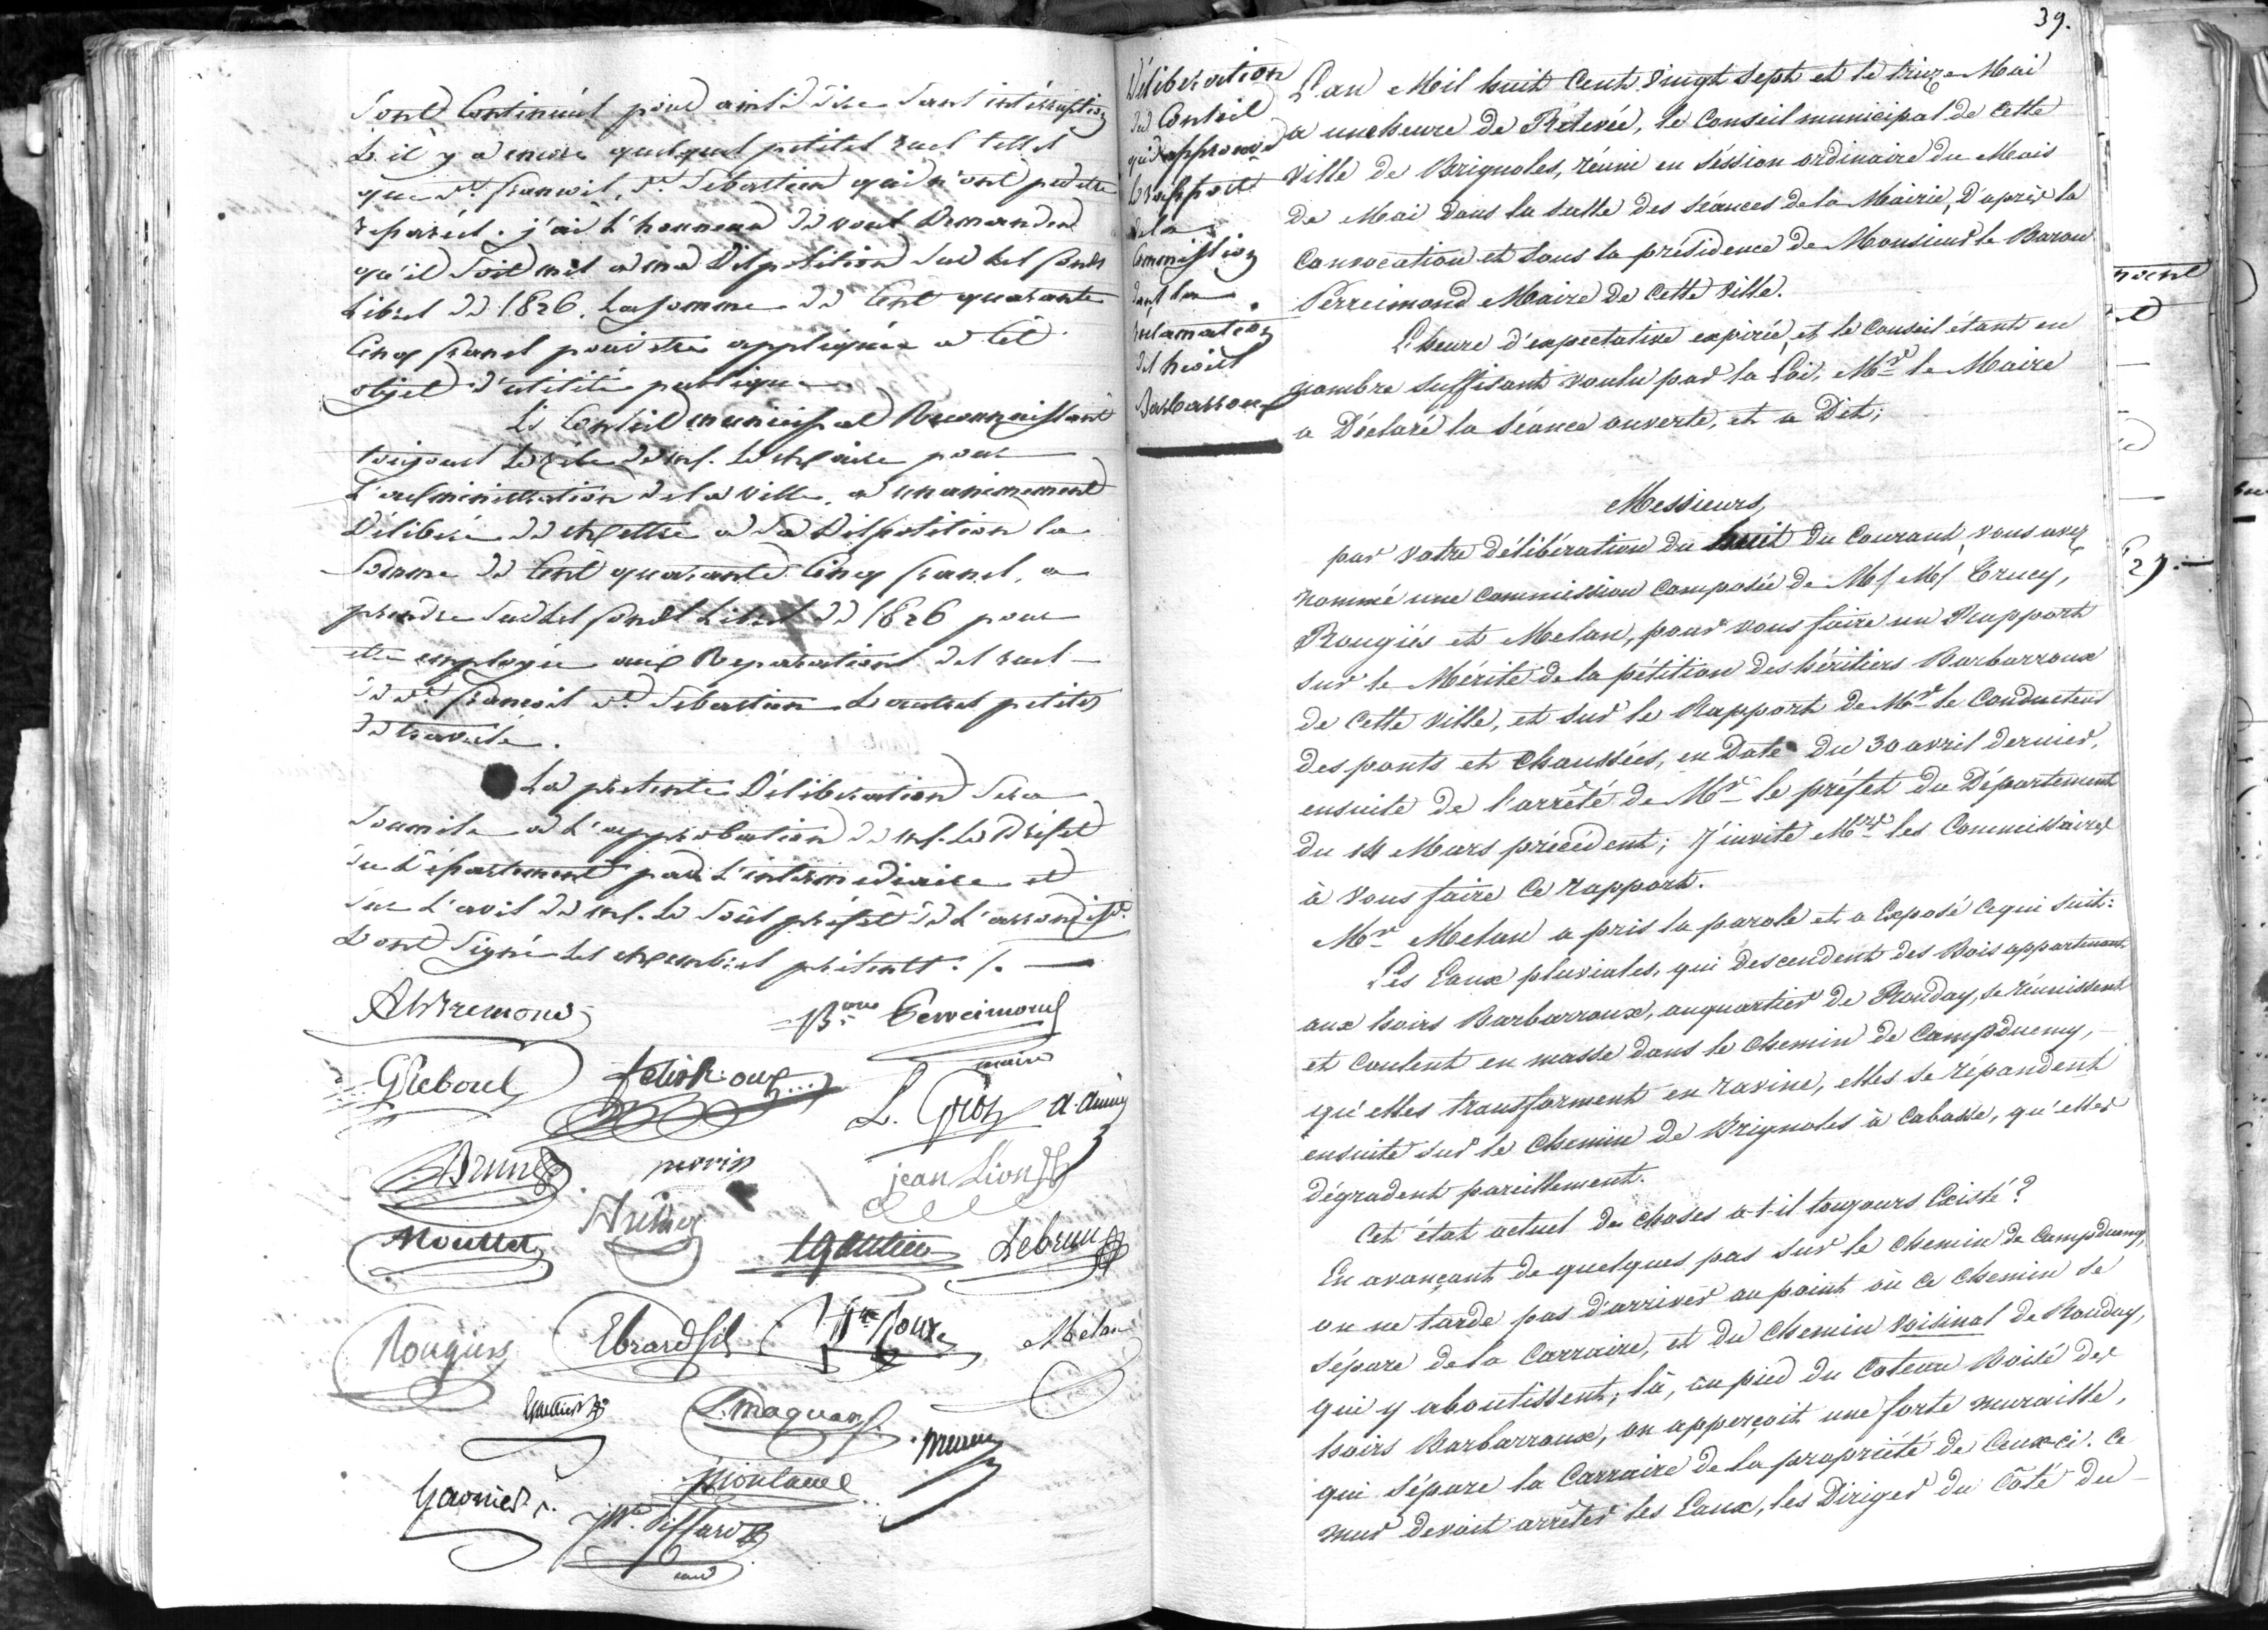 sont continués pour ainsi dire sans intérruption
& il y a encore quelques petites rues telles
que St. francois, St. Sebastien qui n'ont pu etre
reparées. j'ai l'honneur de vous demander
qu'il soit mis a ma disposition sur les fonds
Libres de 1826. La somme de Cent quarante
Cinq francs pour etre appliquée a cet
objet d'utilité publique
Le Conseil municipal Reconnaissant
toujours le zèle de M. Le Maire pour
L'administration de la ville, a unanimement
Délibéré de Mettre a sa Disposition la
Somme de Cent quarante Cinq francs, a
prendre sur les fonds Libres de 1826 pour
etre employée aux Reparations des rues
de St. francois St. Sebastien & autres petites
de traverse.
La presente Délibération sera
soumise a L'approbation de M. Le Préfet
du Département par L'intermediaire et
sur L'avis de M. Le Sous préfet de L'arrondisst.
& ont signé Les Membres présents. /.
Bon Perreimond
maire
G Reboul
L. Gros
Brun
morin
jean Lion
Mouttet
Lebrun
Rougiers
Ebrard fils
Roux
Melan
L. maquan
Garnier
Montaud
Piffard
39.
Délibération
du Conseil
qui approuve
le rapport
de la
Commission
dans la
réclamation
des hoirs
Barbarroux
L'an Mil huit Cents Vingt Sept et le treize Mai
a une heure de Rélevée, le Conseil municipal de Cette
Ville de Brignoles, réuni en Séssion ordinaire du Mois
de Mai dans la salle des séances de la Mairie, D'après la
Convocation et sous la présidence de Monsieur le Baron
Perreimond Maire de Cette Ville.
L'heure d'expectative expirée, et le Conseil étant en
nombre suffisant voulu par la Loi, Mr le Maire
a Déclaré la séance ouverte, et a Dit;
Messieurs,
par votre délibération du huit du Courant, vous avez
nommé une Commission Composée de M/ M/ Trucy,
Rougiés et Melan, pour vous faire un Rapport
sur le Mérite de la pétition des héritiers Barbarroux
de Cette Ville, et sur le Rapport de Mr le Conducteur
des ponts et Chaussées, en Date du 30 avril dernier,
ensuite de l'arrêté de Mr le préfet du Département
du 14 Mars précédent; J'invite Mrs les Commissaires
à vous faire Ce rapport.
Mr Melan a pris la parole et a Exposé Ce qui suit:
Les Eaux pluviales, qui descendent des Bois appartenant
aux hoirs Barbarroux, au quartier de Rouday, se réunissent
et Coulent en masse dans le Chemin de Campduemy,
qu'elles transforment en ravine, elles se répandent
ensuite sur le Chemin de Brignoles à Cabasse, qu'elles
dégradent pareillement.
Cet état actuel des choses a-t-il toujours Existé?
En avançant de quelques pas sur le Chemin de Campduemy,
on ne tarde pas d'arriver au point où Ce Chemin se
sépare de la Carraire, et du Chemin voisinal de Rouday,
qui y aboutissent; là, au pied du Coteau Boisé des
hoirs Barbarroux, on apperçoit une forte muraille,
qui sépare la Carraire de la propriété de Ceux-ci. Ce
mur devait arrêter les Eaux, les Diriger du Côté du